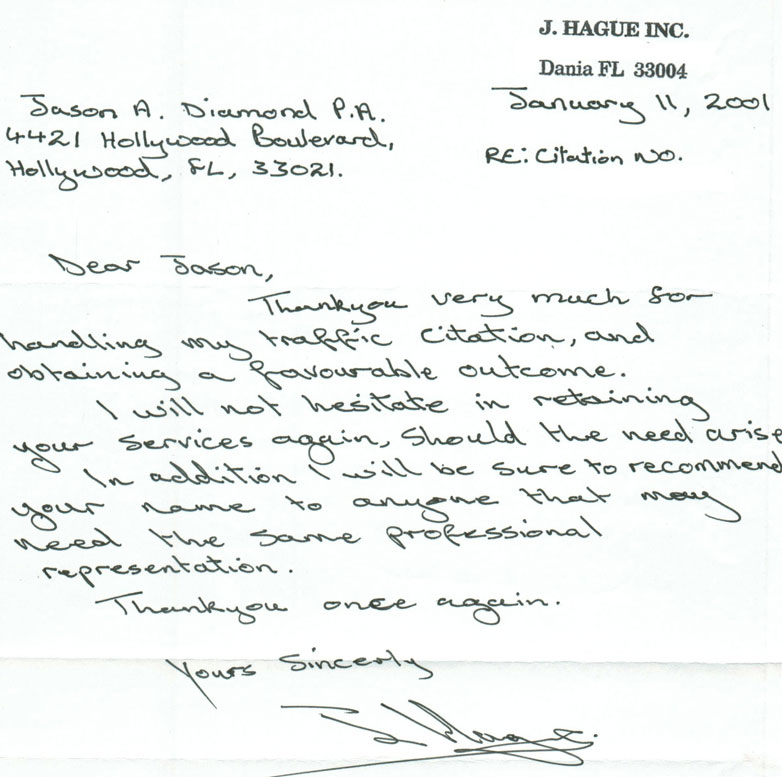 J. HAGUE INC.
Dania FL 33004
January 11, 2001
Jason A. Diamond P.A.
4421 Hollywood Boulevard,
Hollywood, FL, 33021.
RE: Citation NO.
Dear Jason,
Thankyou very much for
handling my traffic citation, and
obtaining a favourable outcome.
I will not hesitate in retaining
your services again, should the need arise
In addition I will be sure to recommend
your name to anyone that may
need the same professional
representation.
Thankyou once again.
Yours Sincerly
J. Hague.